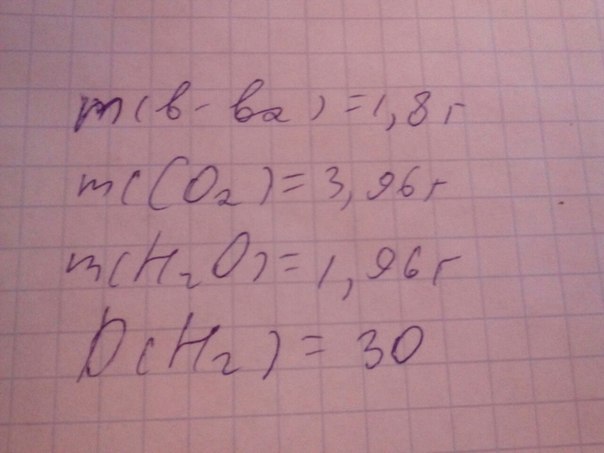 m(в-ва)=1,8г
m(CO₂)=3,96г
m(H₂O)=1,96г
D(H₂)=30